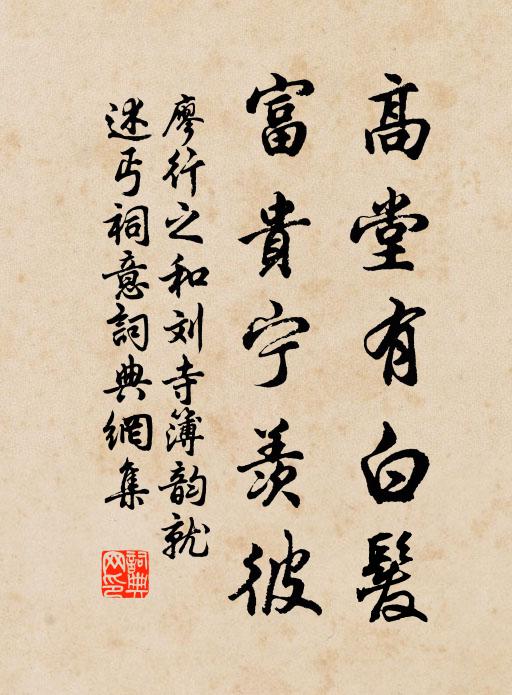 高堂有白髮
富貴宁羡彼
廖行之和刘寺簿韵就
述丐祠意詞典網集
詞典网印